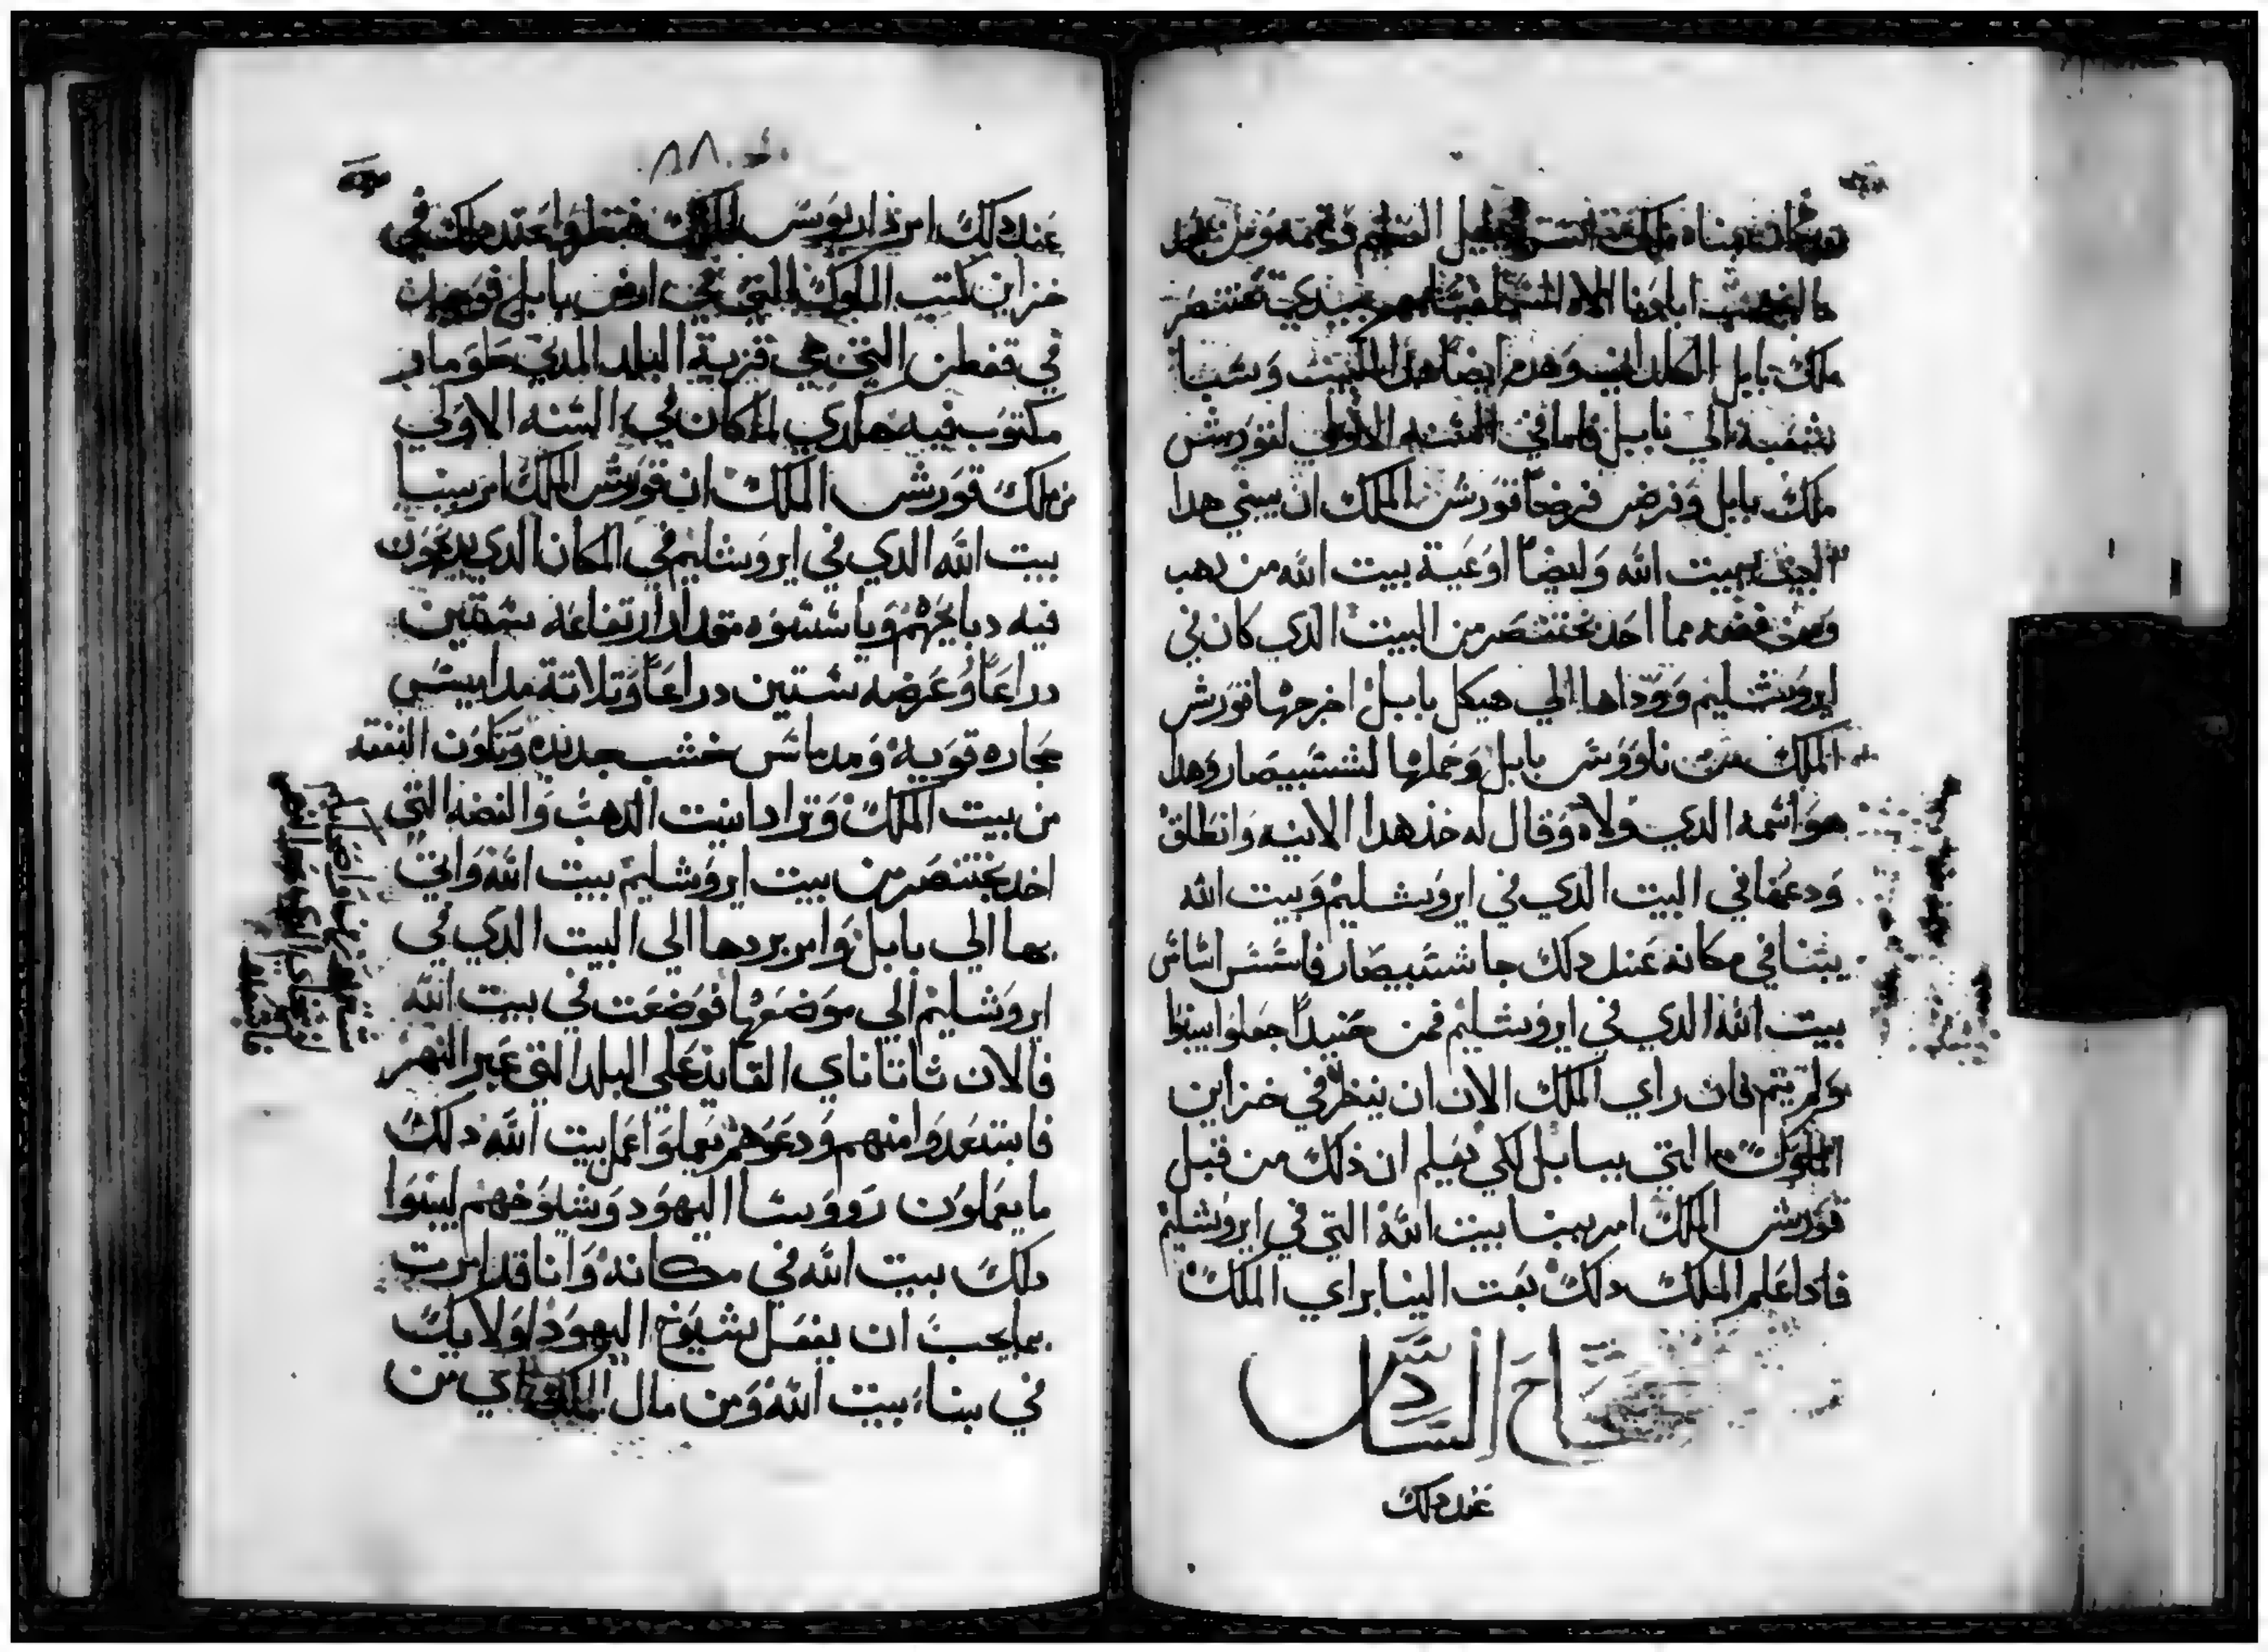 ملك بابل الكلداني وهدم ايضا هدا البيت وسبا
شعبه الي بابل فاما في السنه الاولي لقورش
ملك بابل وفرض فرضا قورش الملك ان يبني هدا
البيت بيت الله وايضا اوعية بيت الله من دهب
ومن فضه مما اخد بختنصر من البيت الدي كان في
ايروشليم ووداها الي هيكل بابل اخرجها قورش
الملك من ناووس بابل وحملها لشسبيصار وهدا
هو اسمه الدي ولاه وقال له خذ هدا الانيه وانطلق
ودعها في البيت الدي في ايروشليم وبيت الله
يبنا في مكانه عند دلك جا شسبيصار فاسس اساس
بيت الله الدي في ايروشليم فمن حنيدا جعلوا يبنوا
ولم يتم فان راي الملك الان ان ينظر في خزاين
الملوك التي ببابل لكي يعلم ان ذلك من قبل
قورش الملك امر ببنا بيت الله التي في ايروشليم
فادا علم الملك دلك بعت الينا براي الملك
الاصحاح السادس
عند دلك
عند دلك امر داريوس الملك في
خزاين كتب الملوك التي في ارض بابل فوجدت
في قفطن التي هي قرية البلد المدي طومار
مكتوب فيه هكدي لما كان في السنه الاولي
من ملك قورش الملك ان قورش الملك امر ببنا
بيت الله الدي في ايروشليم في المكان الدي يدبحون
فيه دبايحهم وياسسوه مقدار ارتفاعه ستين
دراعا وعرضه ستين دراعا وتلاتة مداميس
حجاره قويه ومدماس خشب جديده وتكون النفقه
من بيت الملك وترادا انيت الدهب والفضه التي
اخد بختنصر من بيت ايروشليم بيت الله واتي
بها الي بابل وامر بردها الي البيت الدي في
ايروشليم الي موضعها فوضعت في بيت الله
فالان ثاناناي القايد علي البلد التي عبر النهر
فابتعدوا منهم ودعوهم يعملوا عمل بيت الله دلك
ما يعملون رووسا اليهود وشيوخهم ليبنوا
دلك بيت الله في مكانه وانا قد امرت
بما يحب ان يفعل شيوخ اليهود اولايك
في بناء بيت الله ومن مال الملك اي من